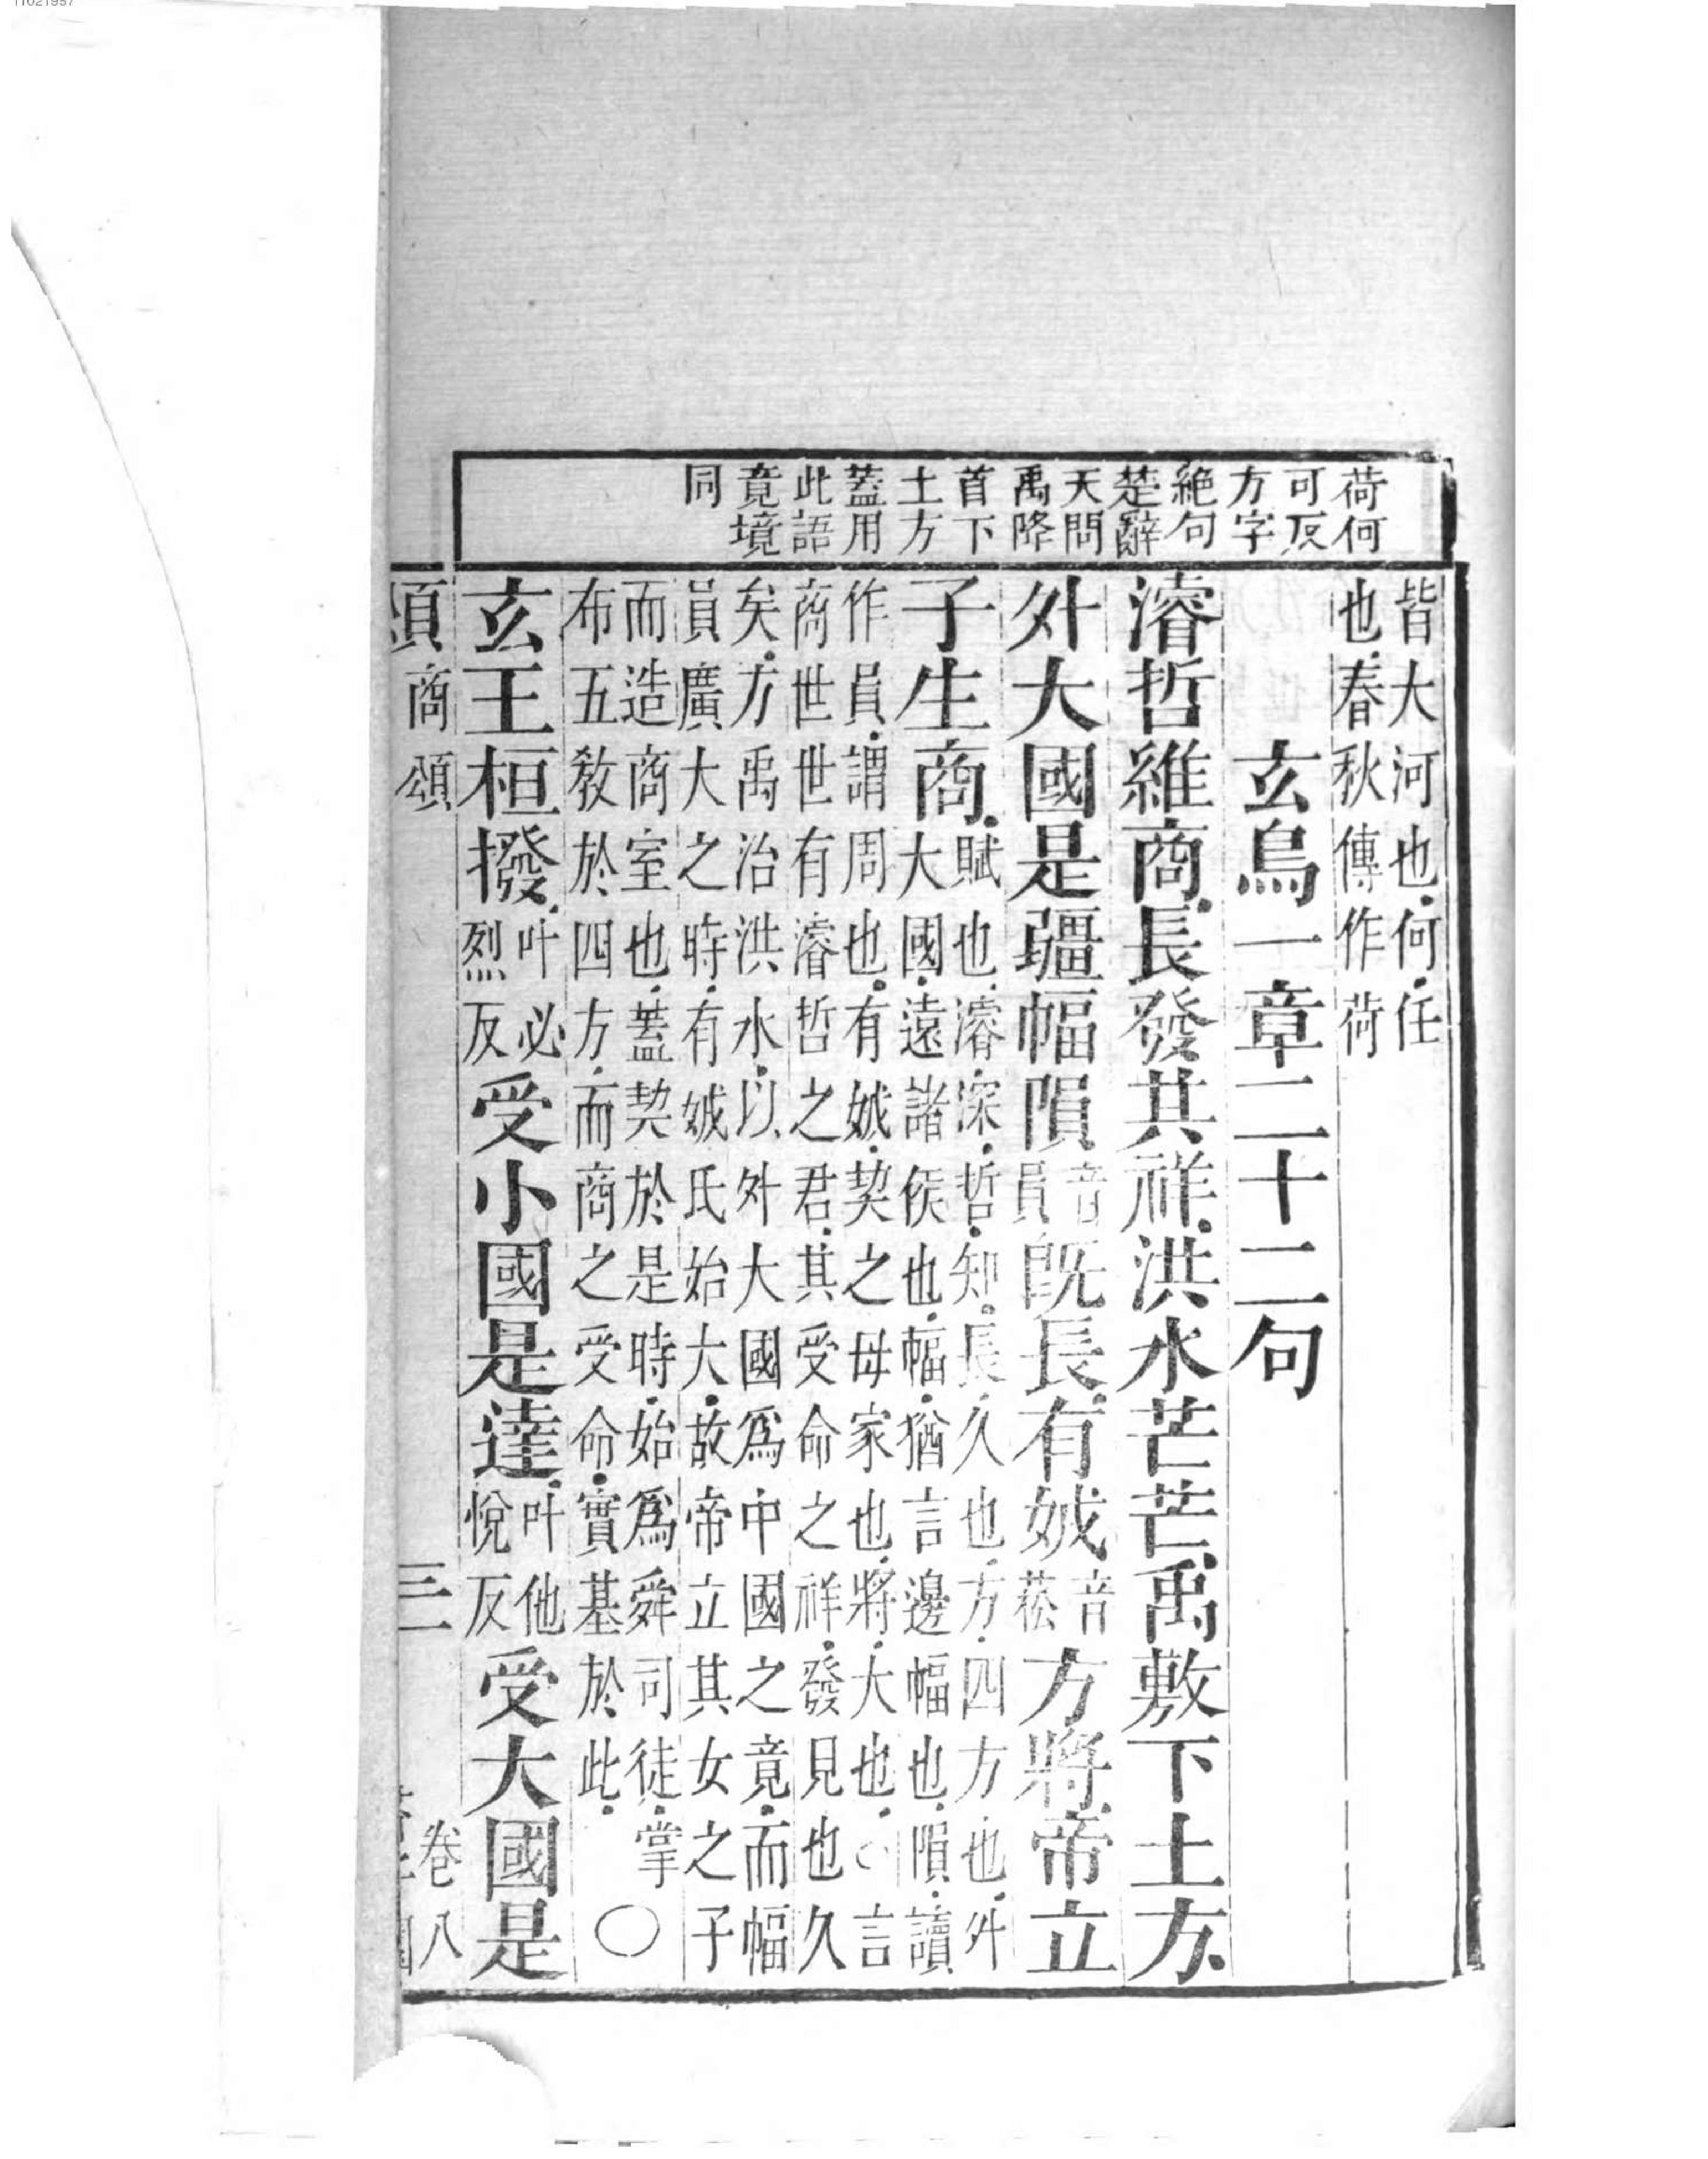 11021957
荷何
可反
方字
絕句
楚辭
天問
禹降
首下
土方
蓋用
此語
竟境
同
皆大河也何任
也春秋傳作荷
玄鳥一章二十二句
濬哲維商長發其祥洪水芒芒禹敷下土方
外大國是疆幅隕音員既長有娀音菘方將帝立
子生商賦也濬深哲知長久也方四方也外
大國遠諸侯也幅猶言邊幅也隕讀
作員謂周也有娀契之母家也將大也○言
商世世有濬哲之君其受命之祥發見也久
矣方禹治洪水以外大國爲中國之竟而幅
員廣大之時有娀氏始大故帝立其女之子
而造商室也蓋契於是時始爲舜司徒掌
布五教於四方而商之受命實基於此○
玄王桓撥叶必烈反受小國是達叶他悅反受大國是
頌 商頌 三 卷八